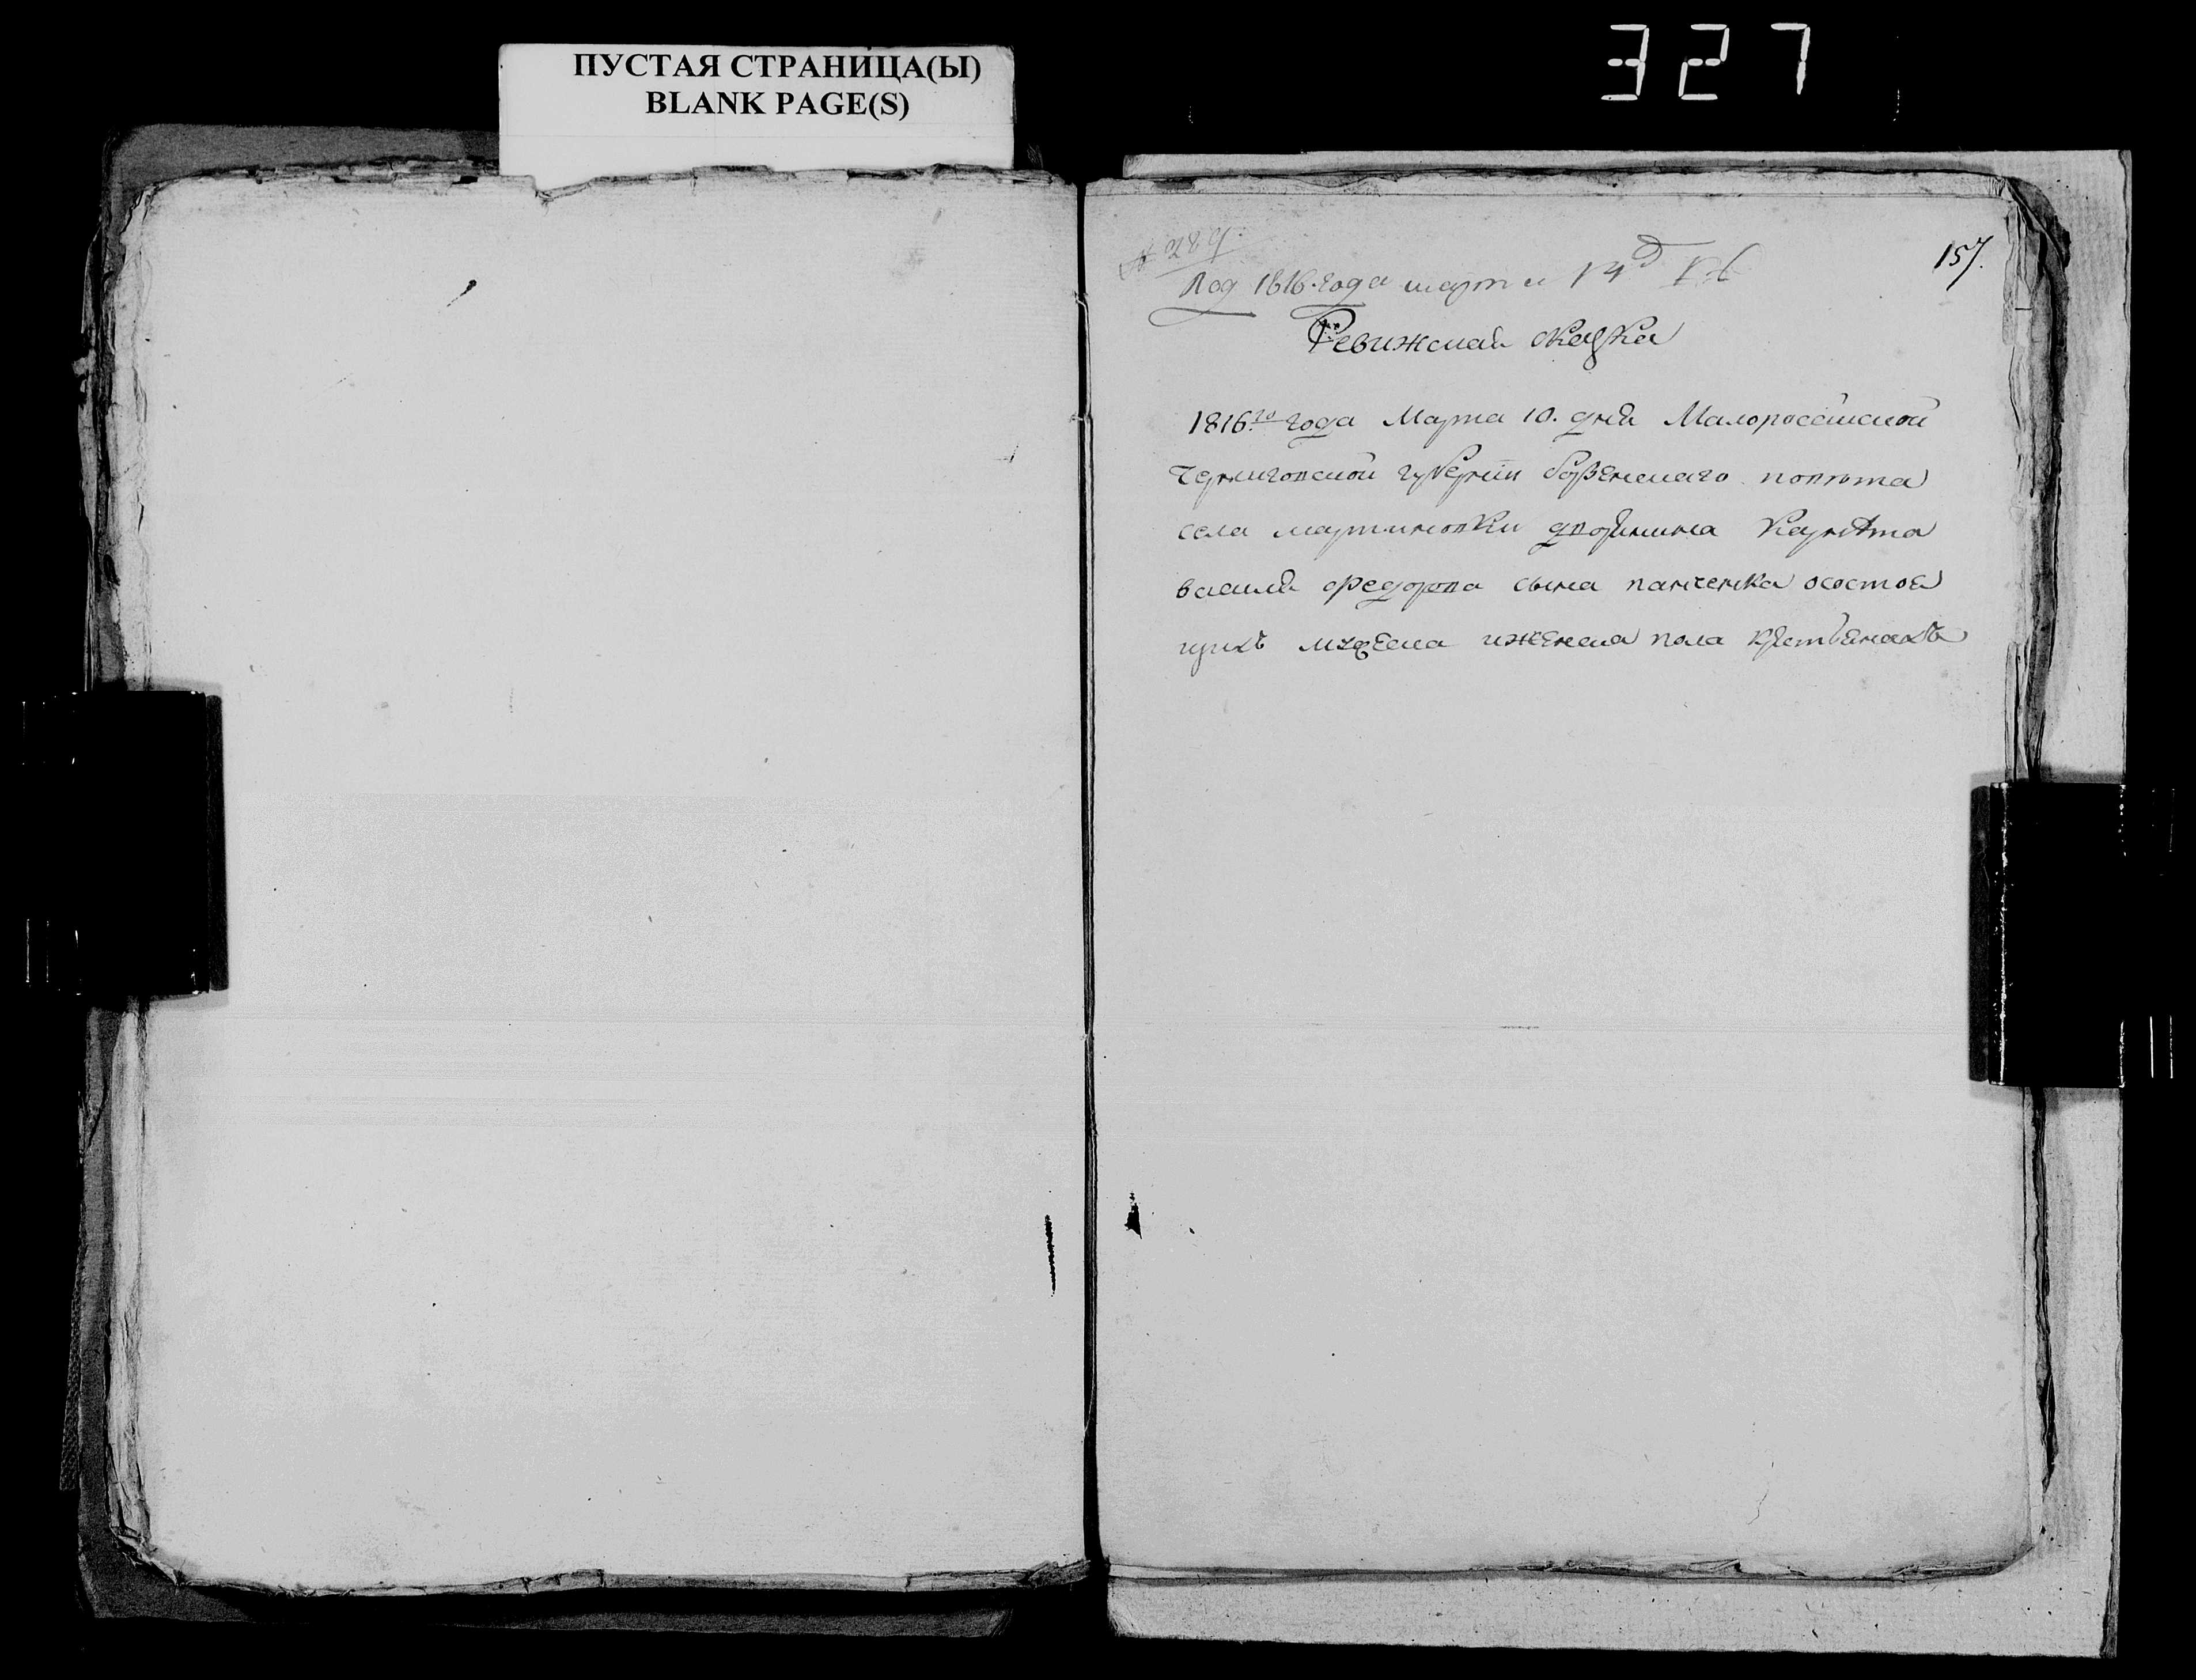 ПУСТАЯ СТРАНИЦА(Ы)
BLANK PAGE(S)
327
157.
№ 289.
Под 1816. года марта 14д
Ревижская скаска
1816го года Марта 10. дня Малоросейской
черниговской губернии борзенскаго повѣта
села мартиновки дворянина Карнѣта
василя федорова сына панченка осостоя
щихъ мужеска иженска пола крестьянахъ